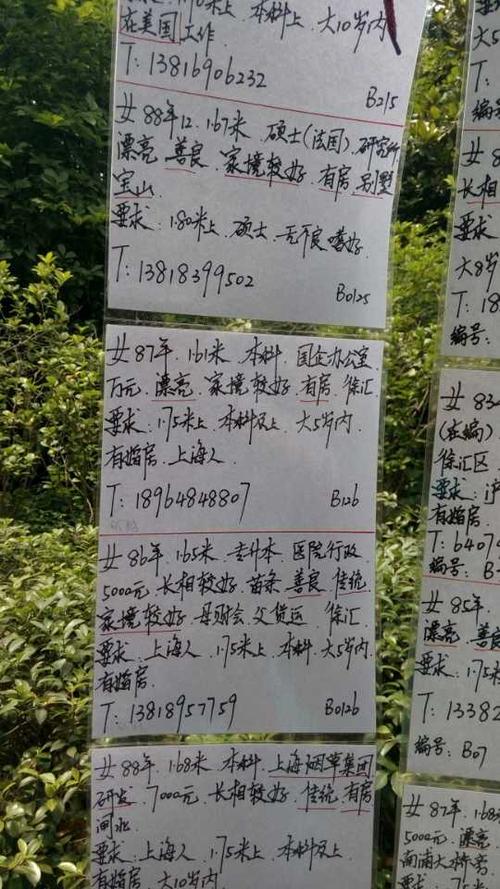 在美国工作
T:13816906232
B215
女88年.12.1.67米.硕士(法国).研究所
漂亮.善良.家境较好.有房.别墅
宝山
要求:1.80米上.硕士.无不良嗜好.
T:13818399502
B0125
女87年.1.61米.本科.国企办公室
万元.漂亮.家境较好.有房.徐汇
要求:1.75米上.本科及上.大5岁内.
有婚房.上海人.
T:18964848807
B126
女86年.1.65米.专升本.医院行政
5000元.长相较好.苗条.善良.传统.
家境较好.母财会.父货运.徐汇
要求:上海人.1.75米上.本科.大5岁内
有婚房.
T:13818957759
B0126
女88年.1.68米.本科.上海烟草集团
研发.7000元.长相较好.传统.有房
闸北
要求:上海人.1.75米上.本科及上
有婚房.大10岁内
大5
编号
女8
长相
要求
大8岁
T:18
编号:
女83
(在编)
徐汇区
要求:沪
有婚房
T:6407
编号:B
女85年.
漂亮.善良
要求:1.75米
T:1338
编号:B07
女87年.1.68
5000元.漂亮